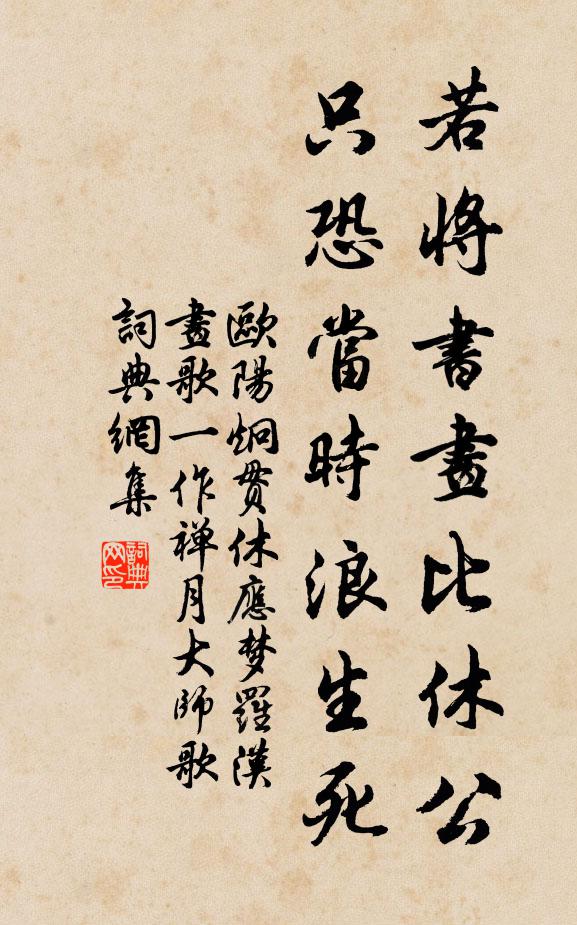 若將書畫比休公
只恐當時浪生死
歐陽炯貫休應梦羅漢
畫歌一作禅月大师歌
詞典網集
詞典网印